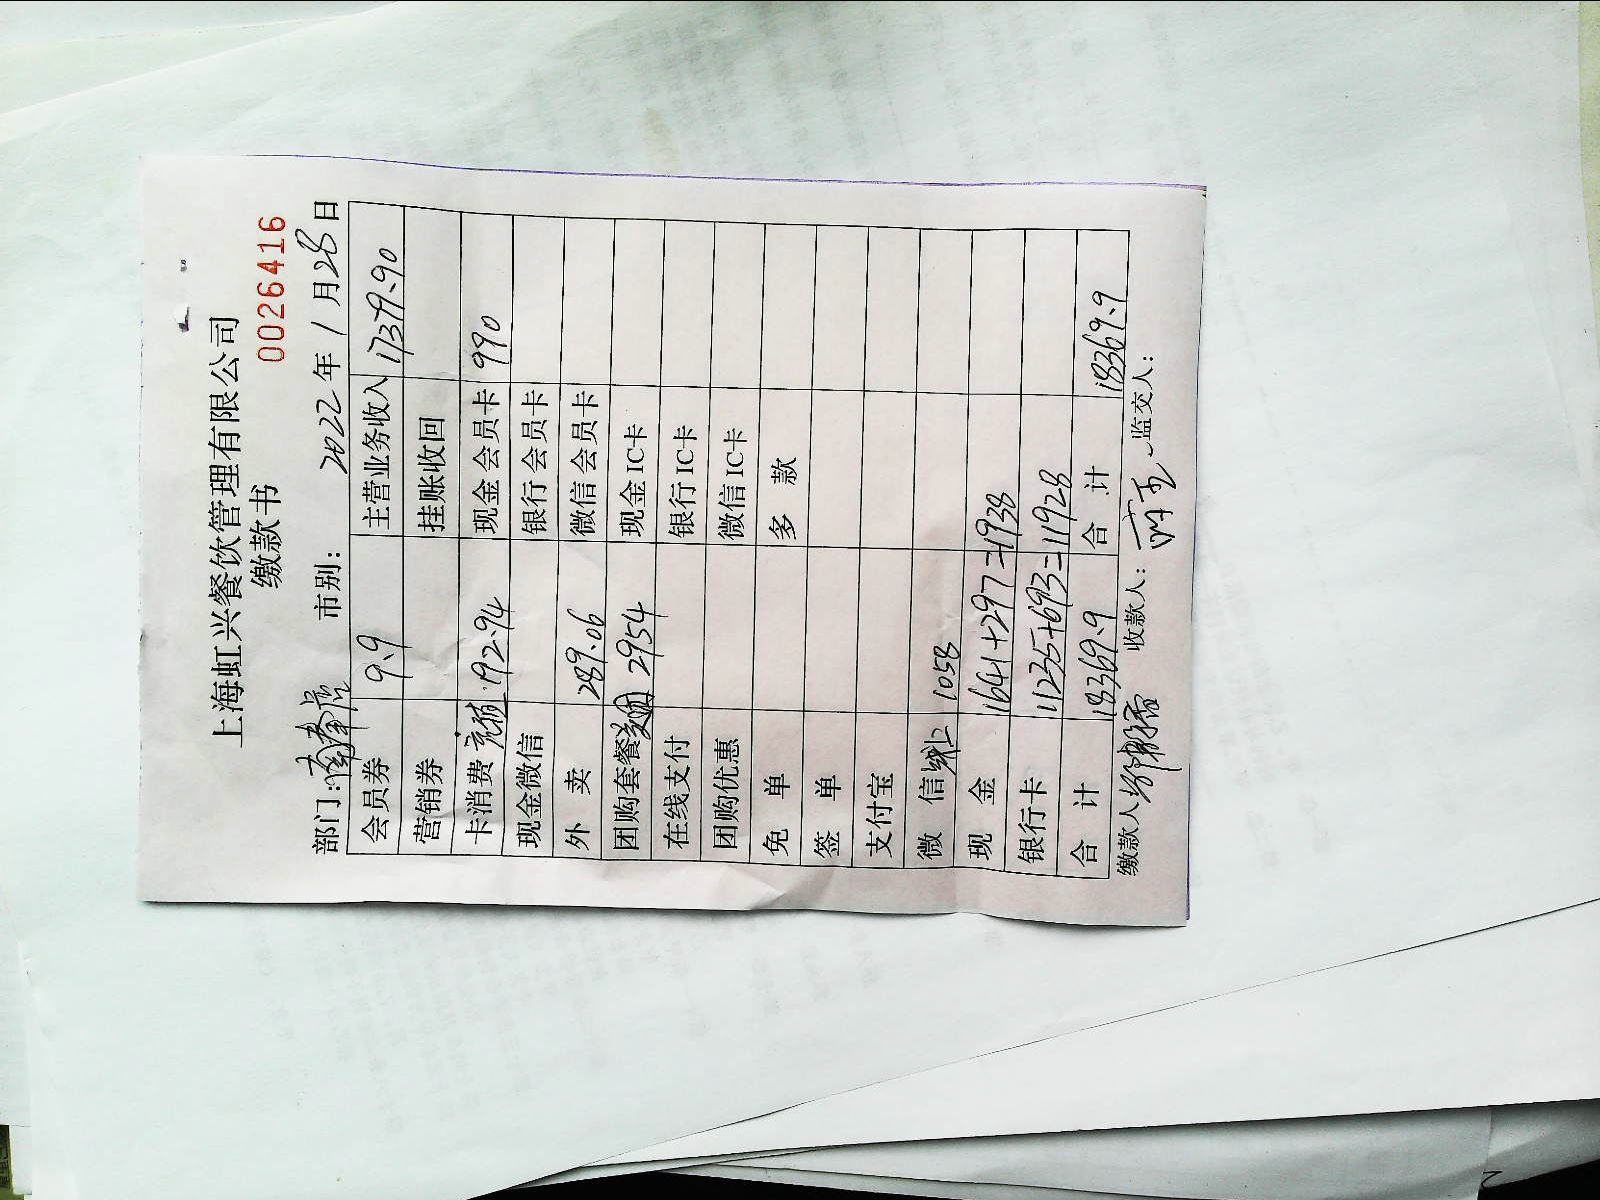 上海虹兴餐饮管理有限公司
缴款书
0026416
部门: 市别: 2022年 1月28日
会员券 9.9 主营业务收入 17379.90
营销券 挂账收回
卡消费 充值 192.94 现金会员卡 990
现金微信 银行会员卡
外卖 289.06 微信会员卡
团购套餐 2954 现金IC卡
在线支付 银行IC卡
团购优惠 微信IC卡
免单 多款
签单
支付宝
微信 线上 1058
现金 1641+297=1938
银行卡 11235+693=11928
合计 18369.9 合计 18369.9
缴款人 收款人: 监交人: